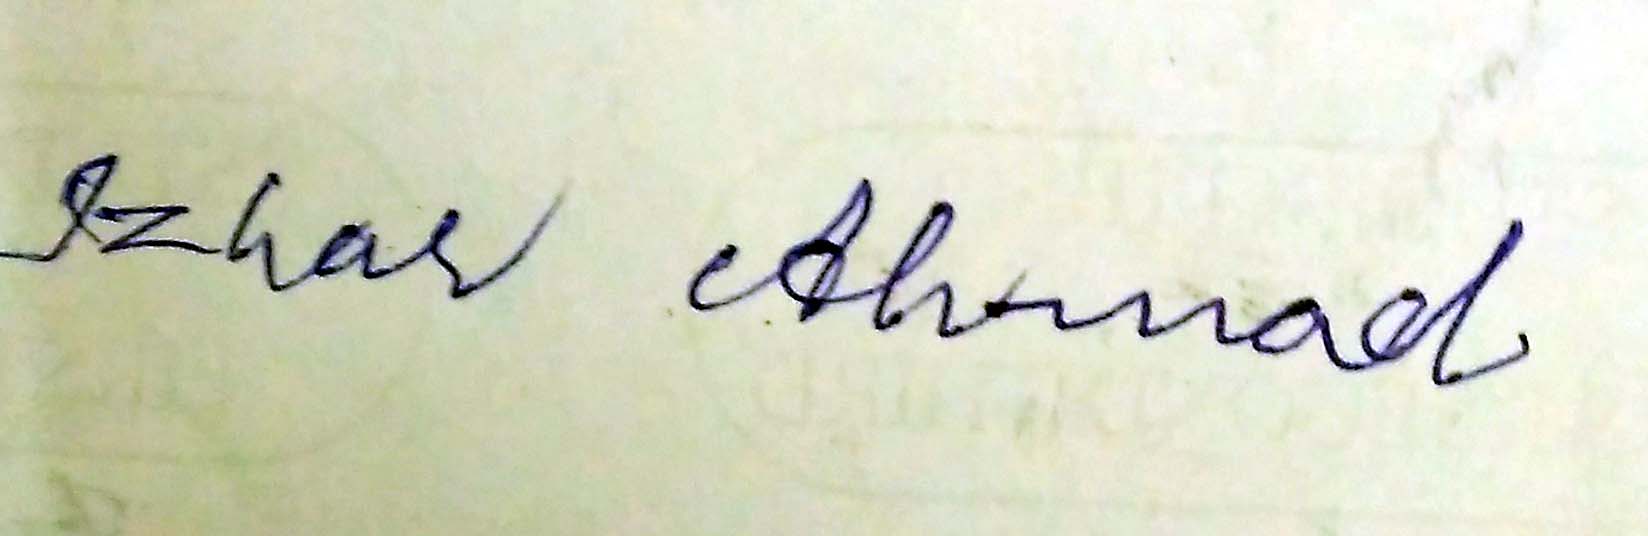 Izhar Ahmad